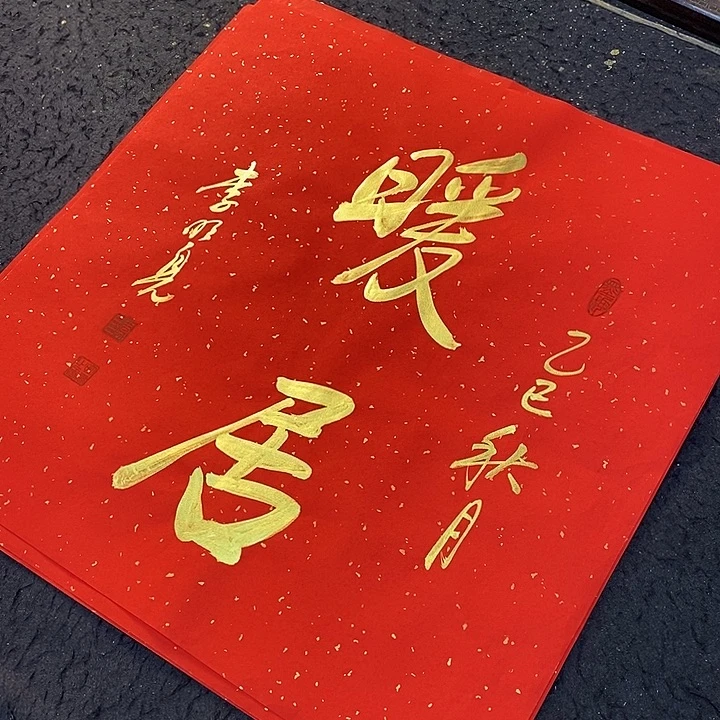 乙巳秋月
暖居
李明见